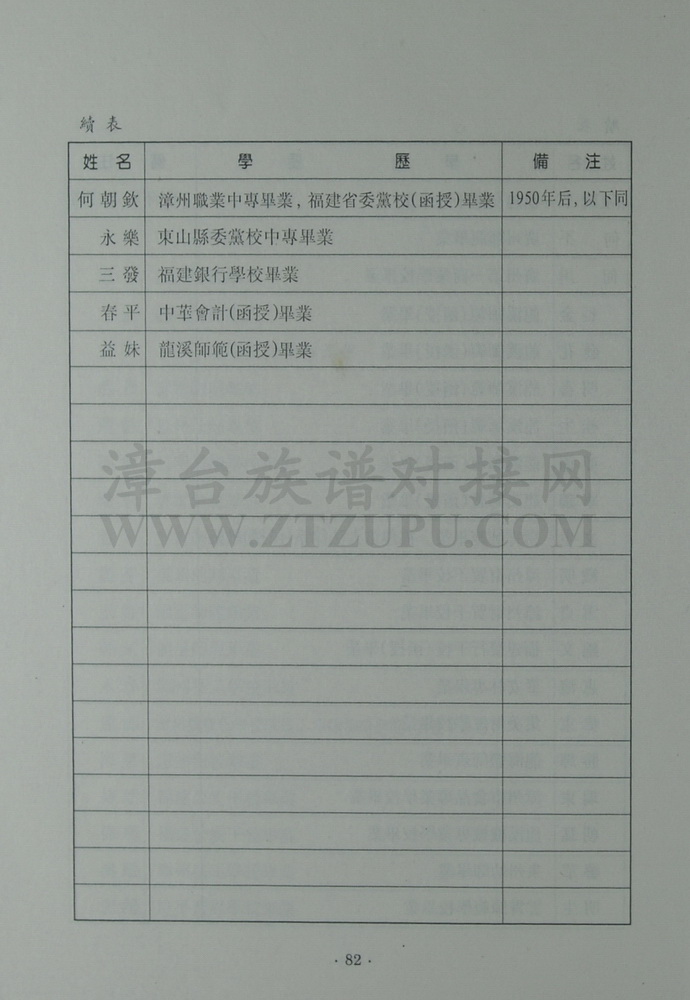 續表
姓名 學歷 備注
何朝欽 漳州職業中專畢業，福建省委黨校(函授)畢業 1950年后，以下同
永樂 東山縣委黨校中專畢業
三發 福建銀行學校畢業
春平 中華會計(函授)畢業
益妹 龍溪師範(函授)畢業
漳台族谱对接网
WWW.ZTZUPU.COM
·82·